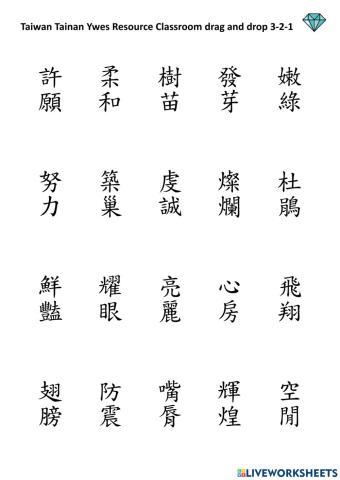 Taiwan Tainan Ywes Resource Classroom drag and drop 3-2-1
許願 柔和 樹苗 發芽 嫩綠
努力 築巢 虔誠 燦爛 杜鵑
鮮豔 耀眼 亮麗 心房 飛翔
翅膀 防震 嘴脣 輝煌 空閒
LIVEWORKSHEETS